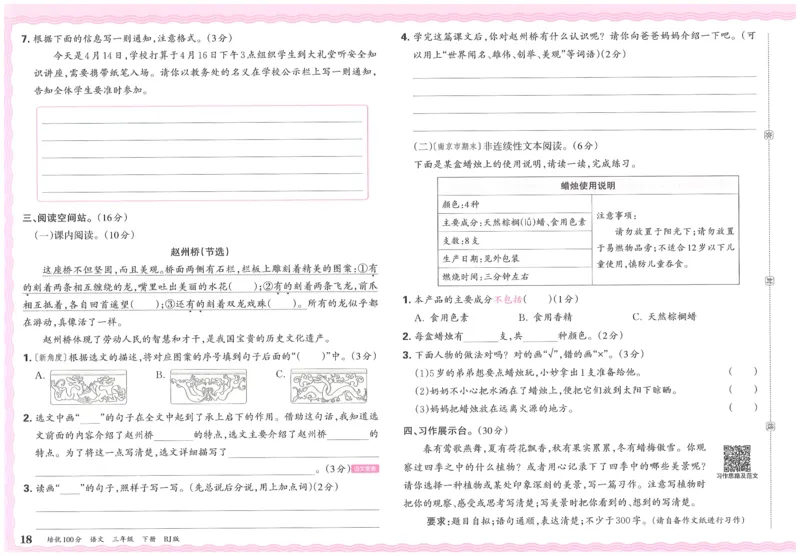 7. 根据下面的信息写一则通知,注意格式。(3分)
今天是4月14日,学校打算于4月16日下午3点组织学生到大礼堂听安全知
识讲座,需要携带纸笔入场。请你以教务处的名义在学校公示栏上写一则通知,
告知全体学生要准时参加。
三、阅读空间站。(16分)
(一)课内阅读。(10分)
赵州桥(节选)
这座桥不但坚固,而且美观。桥面两侧有石栏,栏板上雕刻着精美的图案:①有
的刻着两条相互缠绕的龙,嘴里吐出美丽的水花( );②有的刻着两条飞龙,前爪
相互抵着,各自回首遥望( );③还有的刻着双龙戏珠( )。所有的龙似乎都
在游动,真像活了一样。
赵州桥体现了劳动人民的智慧和才干,是我国宝贵的历史文化遗产。
1. [新角度]根据选文的描述,将对应图案的序号填到句子后面的“( )”中。(3分)
A. B. C.
2. 选文中画“____”的句子在全文中起到了承上启下的作用。借助这句话,我知道选
文前面的内容介绍了赵州桥________的特点,选文主要介绍了赵州桥________的
特点。为了将这一点写清楚,选文详细描写了________
________。(3分)
3. 读画“____”的句子,照样子写一写。(先总说后分说,用上加点词)(2分)
18 培优100分 语文 三年级 下册 RJ版
4. 学完这篇课文后,你对赵州桥有什么认识呢?请你向爸爸妈妈介绍一下吧。(可
以用上“世界闻名、雄伟、创举、美观”等词语)(2分)
(二)[南京市期末]非连续性文本阅读。(6分)
下面是某盒蜡烛上的使用说明,请读一读,完成练习。
蜡烛使用说明
颜色:4种
主要成分:天然棕榈(lǘ)蜡、食用色素
支数:8支
生产日期:见外包装
燃烧时间:三分钟左右
注意事项:
请勿放置于阳光下;请勿放置
于易燃物品旁;不适合12岁以下儿
童使用,慎防儿童吞食。
1. 本产品的主要成分不包括( )(1分)
A. 食用色素 B. 食用香精 C. 天然棕榈蜡
2. 每盒蜡烛有____支,共____种颜色。(2分)
3. 下面人物的做法对吗?对的画“√”,错的画“×”。(3分)
(1)5岁的弟弟想要点蜡烛玩,小妙拿出1支准备给他。 ( )
(2)奶奶不小心把水洒在了蜡烛上,便把它们放到太阳下晾晒。 ( )
(3)妈妈把蜡烛放在远离火源的地方。 ( )
四、习作展示台。(30分)
春有莺歌燕舞,夏有荷花飘香,秋有果实累累,冬有蜡梅傲雪。你观
察过四季之中的什么植物?或者用心记录下了四季中的哪些美景呢?
请你选择一种植物或某处印象深刻的美景,写一篇习作。注意写植物时
把你的观察、感受或思考写清楚;写美景时把你看到的、想到的写清楚。
习作思路及范文
要求:题目自拟;语句通顺,表达清楚;不少于300字。(请自备作文纸进行习作)